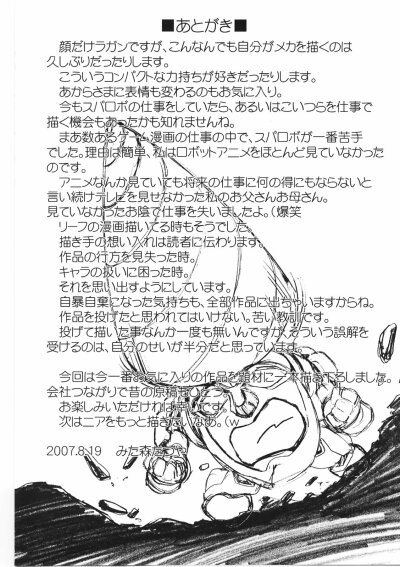 ■あとがき■
顔だけラガンですが、こんなんでも自分がメカを描くのは
久しぶりだったりします。
こういうコンパクトな力持ちが好きだったりします。
あからさまに表情も変わるのもお気に入り。
今もスパロボの仕事をしていたら、あるいはこいつらを仕事で
描く機会もあったかも知れませんね。
まあ数あるゲーム漫画の仕事の中で、スパロボが一番苦手
でした。理由は簡単、私はロボットアニメをほとんど見ていなかった
のです。
アニメなんか見ていても将来の仕事に何の得にもならないと
言い続けテレビを見せなかった私のお父さんお母さん。
見ていなかったお陰で仕事を失いましたよ。(爆笑
リーフの漫画描いてる時もそうでした。
描き手の想い入れは読者に伝わります。
作品の行方を見失った時。
キャラの扱いに困った時。
それを思い出すようにしています。
自暴自棄になった気持ちも、全部作品に出ちゃいますからね。
作品を投げたと思われてはいけない。苦い教訓です。
投げて描いた事なんか一度も無いんですが、そういう誤解を
受けるのは、自分のせいが半分だと思っています。
今回は今一番お気に入りの作品を題材に一本描き下ろしました。
会社つながりで昔の原稿も
お楽しみいただければ幸いです。
次はニアをもっと描きたいなぁ。(w
2007.8.19 みた森